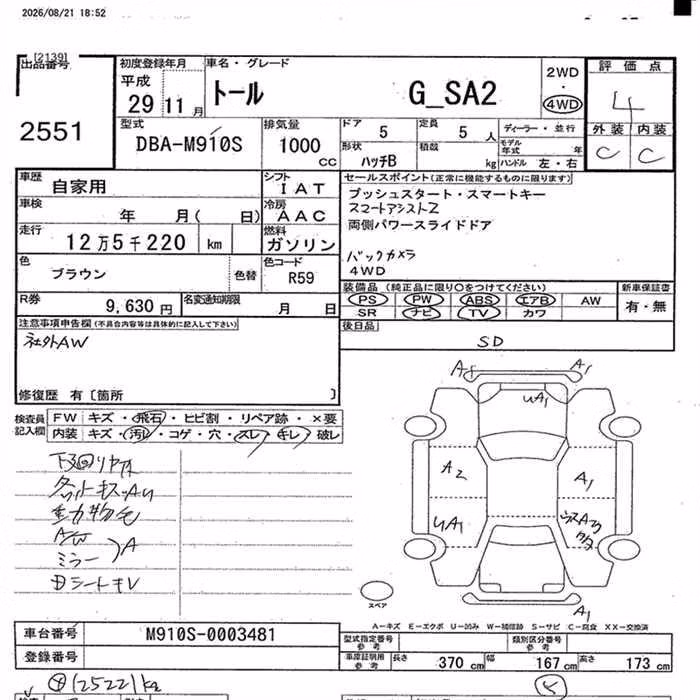 2026/08/21 18:52
[2139]
出品番号
2551
初度登録年月
平成
29 11 月
車名・グレード
トール G_SA2
2WD
・
4WD
評価点
4
外装 内装
C C
型式
DBA-M910S
排気量
1000 cc
ドア 5
定員 5 人
ディーラー・並行
形状 ハッチB
積載 kg
モデル年式 年
ハンドル 左・右
車歴 自家用
シフト IAT
車検 年 月( 日)
冷房 AAC
走行 12万5千220 km
燃料 ガソリン
色 ブラウン 色替
色コード R59
R券 9,630 円
名変通知期限 月 日
セールスポイント(正常に機能するものに限ります)
プッシュスタート・スマートキー
スマートアシスト2
両側パワースライドドア
バックカメラ
4WD
装備品 (純正品に限り○をつけてください)
PS PW ABS エアB AW
SR ナビ TV カワ
新車保証書
有・無
後日品
SD
注意事項申告欄(不具合内容等は具体的に記入して下さい)
社外AW
修復歴 有〔箇所 〕
検査員記入欄
FW キズ・飛石・ヒビ割・リペア跡・×要
内装 キズ・汚レ・コゲ・穴・スレ・キレ・破レ
下回りサビ
動物毛
A/W
ミラー
A
シートキレ
A1
UA1
A2
A1
UA1
A1
スペア
A−キズ E−エクボ U−凹み W−補修跡 S−サビ C−腐食 XX−交換済
車台番号 M910S-0003481
登録番号
型式指定番号 参考
類別区分番号 参考
車庫証明用 参考
長さ 370 cm 幅 167 cm 高さ 173 cm